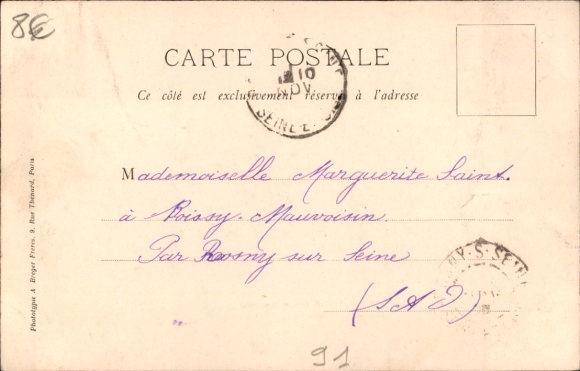 8€
CARTE POSTALE
10
NOV
Ce côté est exclusivement réservé à l'adresse
Mademoiselle Marguerite Saint.
à Poissy-Mauvoisin
Par Rosny sur Seine
(S A O)
NY-S-SEINE
91
Phototypie A Breger Frères, 9, Rue Thénard, Paris